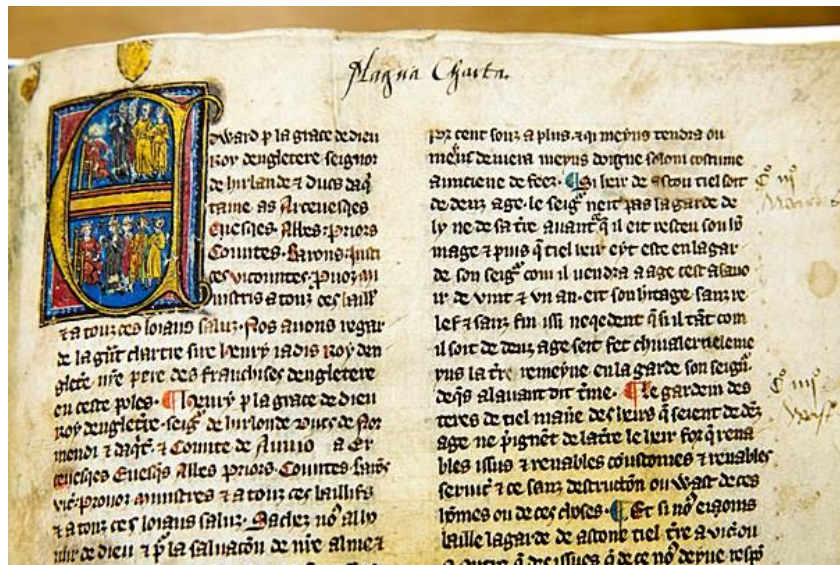 Magna Charta.
Edward p la grace de dieu
Roy dengletere seignor
de hirlande ⁊ Ducs daq̃
taine as Arceuesqes
Euesqes Abbes Priors
Countes Barons justi
ces vicountes Prouoz mi
nistris a touz ces baill
⁊ a touz ces loiaus saluz Nos auons regar
de la g̃nt chartre sire henry iadis Roy den
glet̃e nr̃e pere des franchises dengletere
en ceste poles ¶ Henry p la grace de dieu
Roy dengletre seig̃ de hirlonde de Nor
mendi ⁊ daqt̃ ⁊ Counte de a Er
ceuesqes Euesqs Abbes Priors Countes baro̅s
vic̃ Prouoz ministres ⁊ a touz ces baillifs
⁊ a touz ces loiaus saluz Sachez no᷒
de dieu ⁊ p̃ la saluac̃on de nr̃e alme ⁊
por cent souz a plus ⁊ qi meyns tendra ou
meĩs deuera meyns doigne solom custume
aunciene de feez ¶ Si heir de ascou tiel soit
de denz age le seig᷒ neit pas la garde de
ly ne de sa tr̃e auant q̃ il eit resceu son ho̅
mage ⁊ puis q̃ tiel heir eyt este en la gar
de son seig᷒ com il vendra a age cest asauo
ir de vint ⁊ vn an eit son h̃itage sanz re
lef ⁊ sanz fin issi neqedent q̃ si il tãt com
il soit de denz age seit fet chiualer tieleme
yns la tr̃e remeyne en la garde son seign̅
deq̃s alauant dit t̃me ¶ Le gardein des
teres de tiel man̅e des heirs q̃ seient de dẽz
age ne p̃ignẽt de la tr̃e le heir for q̃ rena
bles issus ⁊ renables coustomes ⁊ renables
seruic̃ ⁊ ce sanz destructo̅n ou wast de ces
ho̅mes ou de ces choses ¶ Et si no᷒ eioms
baille la garde de ascone tiel t̃re a vic̃ ou